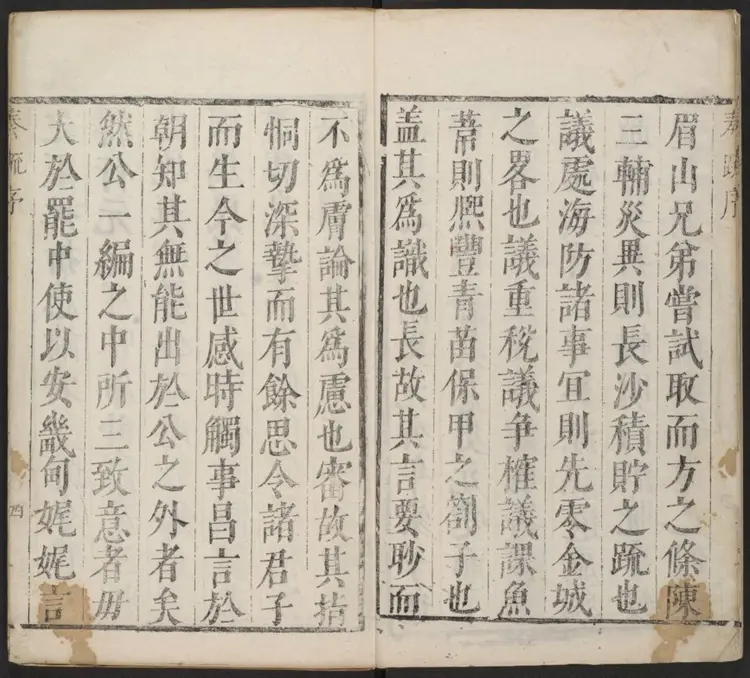 奏疏序
眉山兄弟嘗試取而方之條陳
三輔災異則長沙積貯之疏也
議處海防諸事冝則先零金城
之畧也議重稅議爭榷議課魚
葦則熈豐青苗保甲之劄子也
盖其爲識也長故其言要眇而
不爲膚論其爲慮也審故其指
恫切深摯而有餘思令諸君子
而生今之世感時觸事昌言於
朝知其無能出於公之外者矣
然公一編之中所三致意者毋
大於罷中使以安畿甸娓娓言
奏疏序
四